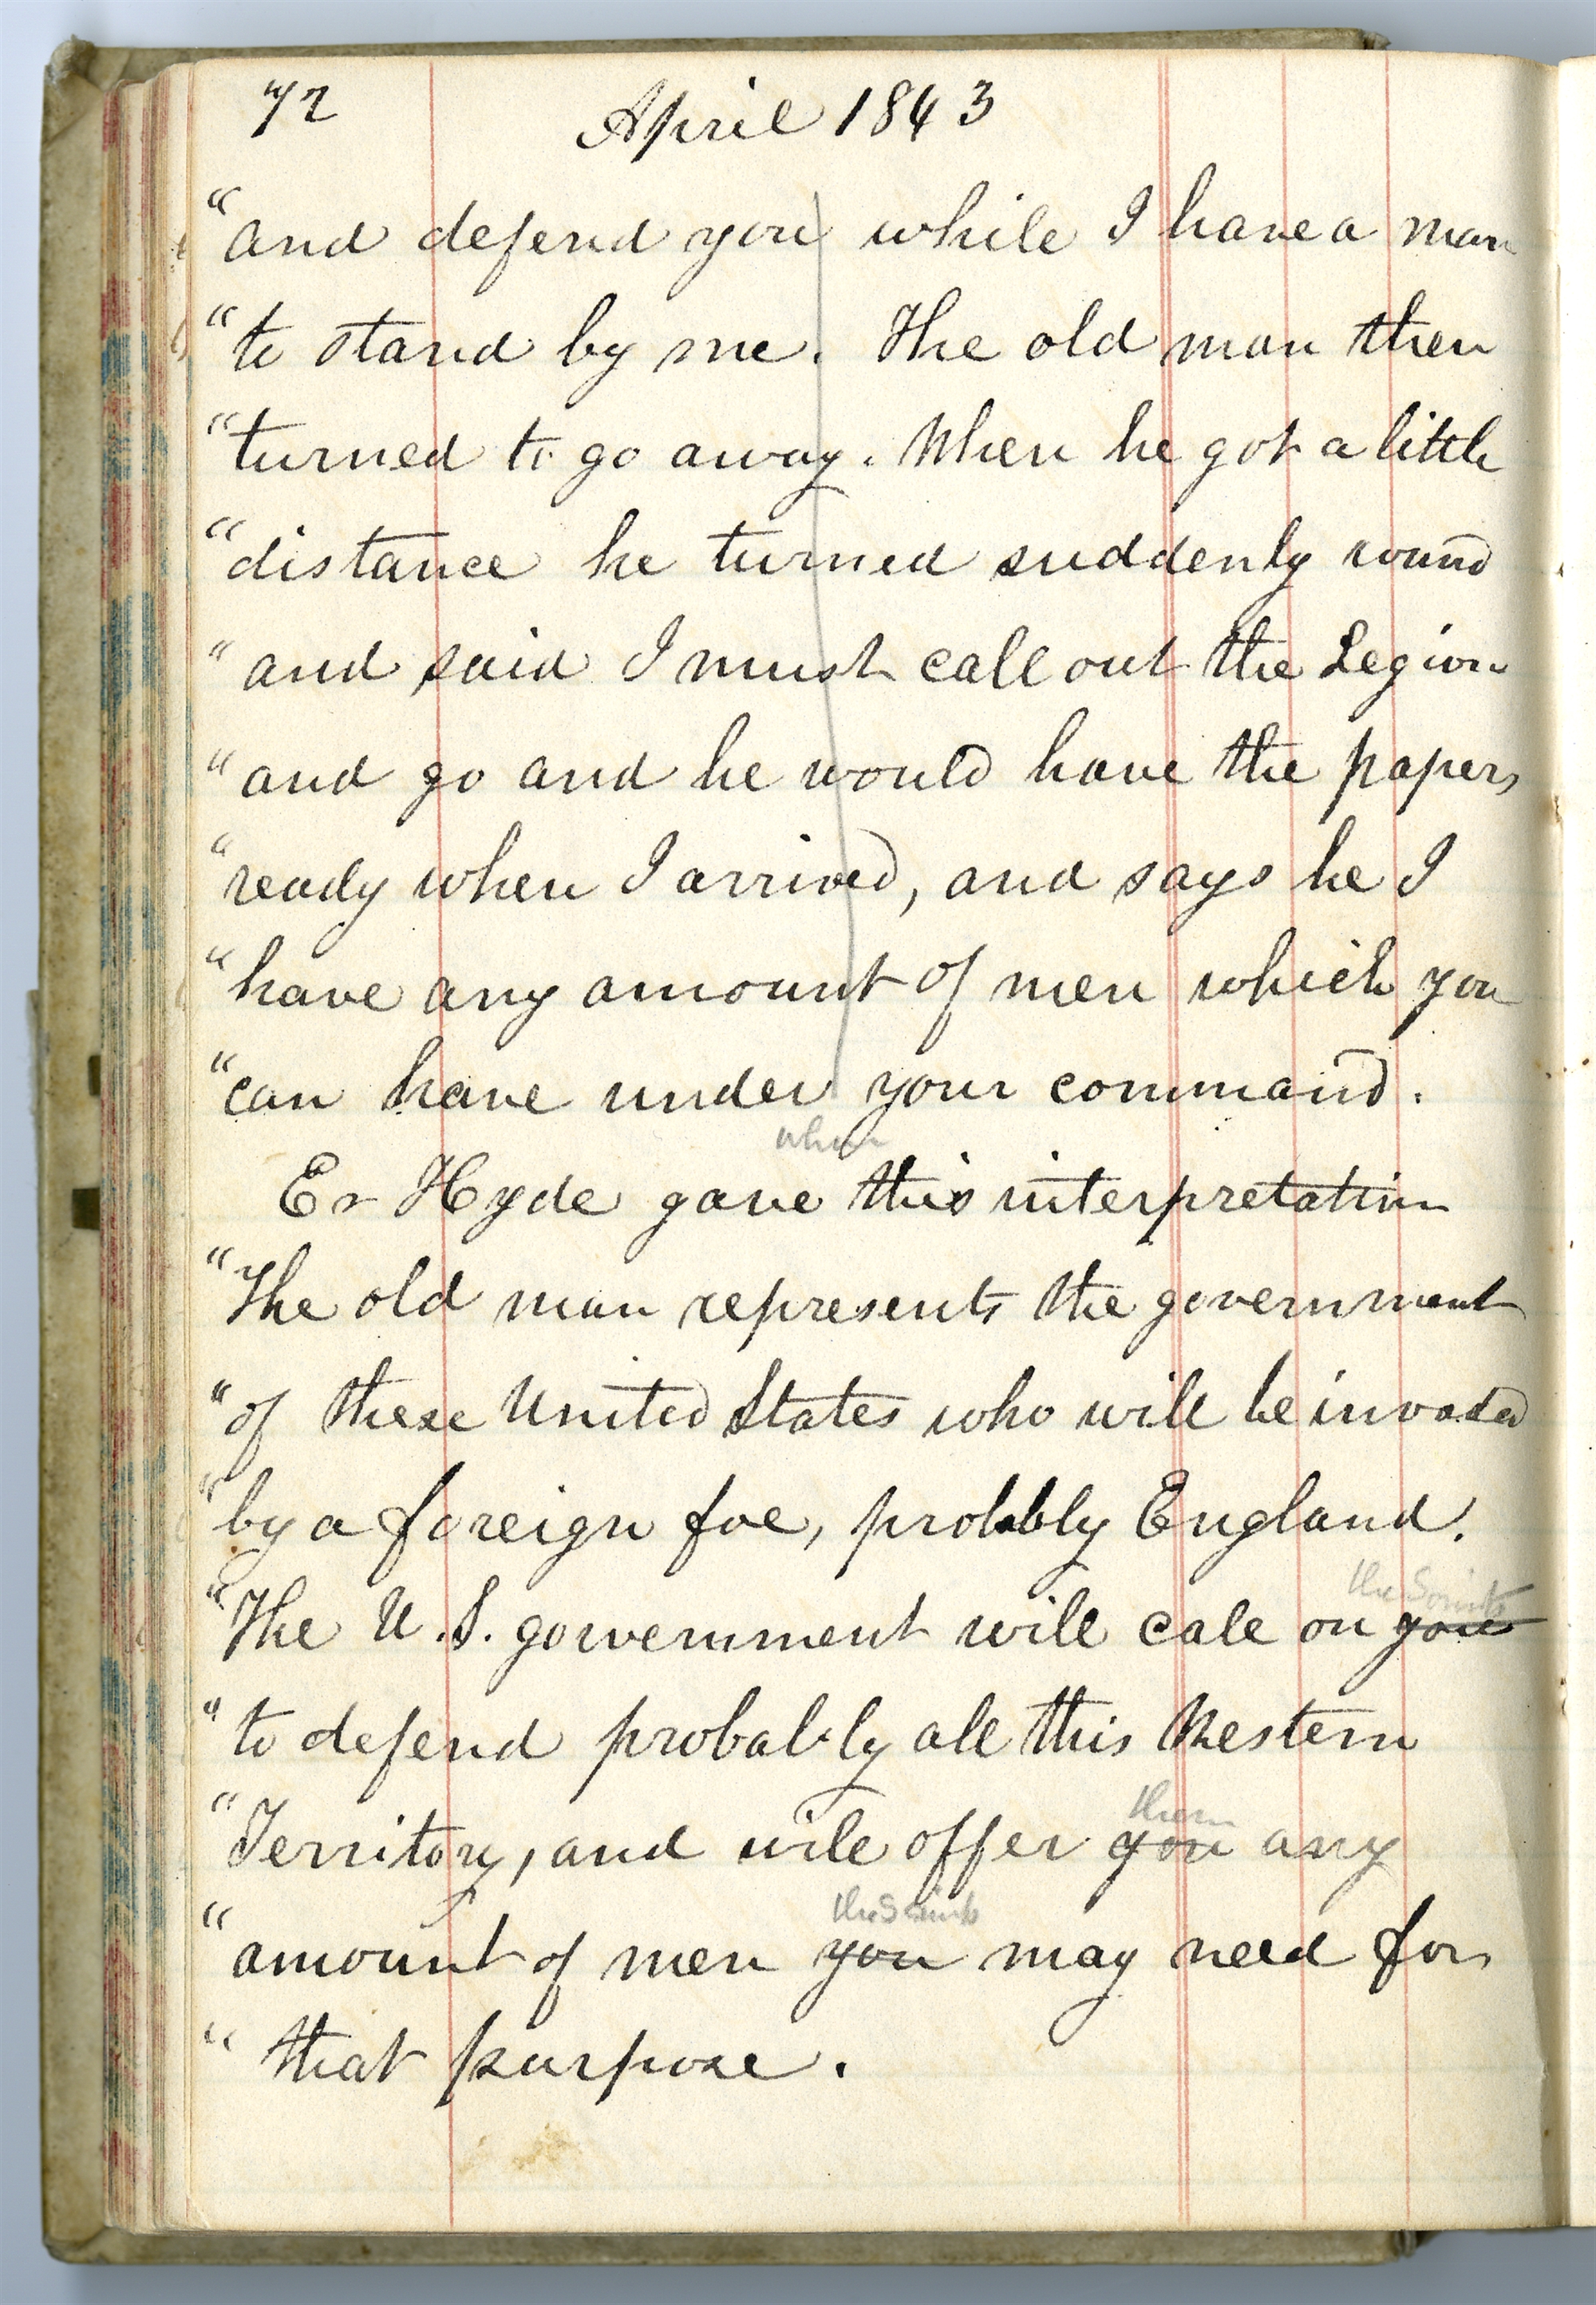 72 April 1843
"and defend you while I have a man
"to stand by me. The old man then
"turned to go away. When he got a little
"distance he turned suddenly round
"and said I must call out the Legion
"and go and he would have the papers
"ready when I arrived, and says he I
"have any amount of men which you
"can have under your command.
when
Er Hyde gave this interpretation
"The old man represents the government
"of these United States who will be invaded
"by a foreign foe, probably England.
the Saints
"The U.S. government will call on you
"to defend probably all this Western
them
"Territory, and will offer you any
the Saints
"amount of men you may need for
"that purpose.